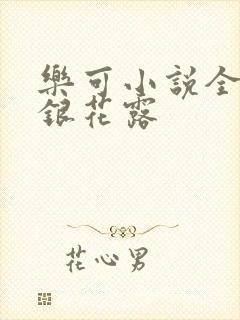 樂可小說全
銀花露
花心男